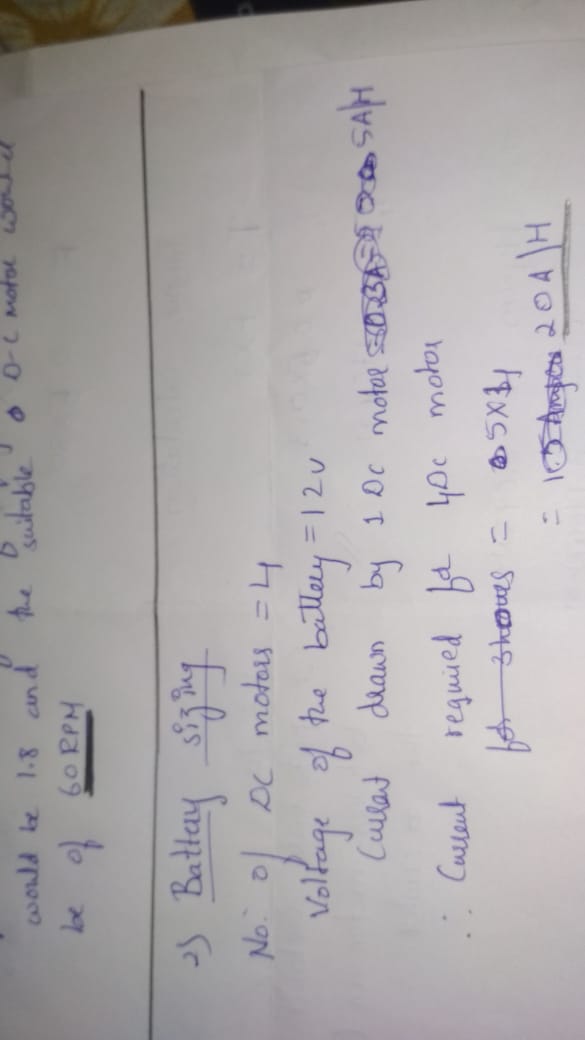 would be 1.8 and the suitable D-C motor would
be of 60 RPM
2) Battery sizing
No: of DC motors = 4
Voltage of the battery = 12v
Current drawn by 1 Dc motor 5A/H
∴ Current required for 4Dc motor
for 3 hours = 5X4
= 20A/H